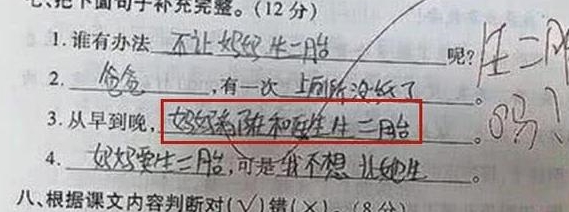 七、把下面句子补充完整。(12分)
1. 谁有办法 不让妈妈生二胎 呢? 生二胎
2. 爸爸 ,有一次 上厕所没纸了 。 吗?
3. 从早到晚, 妈妈都 和 生二胎 。
4. 妈妈要生二胎,可是 我不想让她生 。
八、根据课文内容判断对(√)错(×)。(8分)